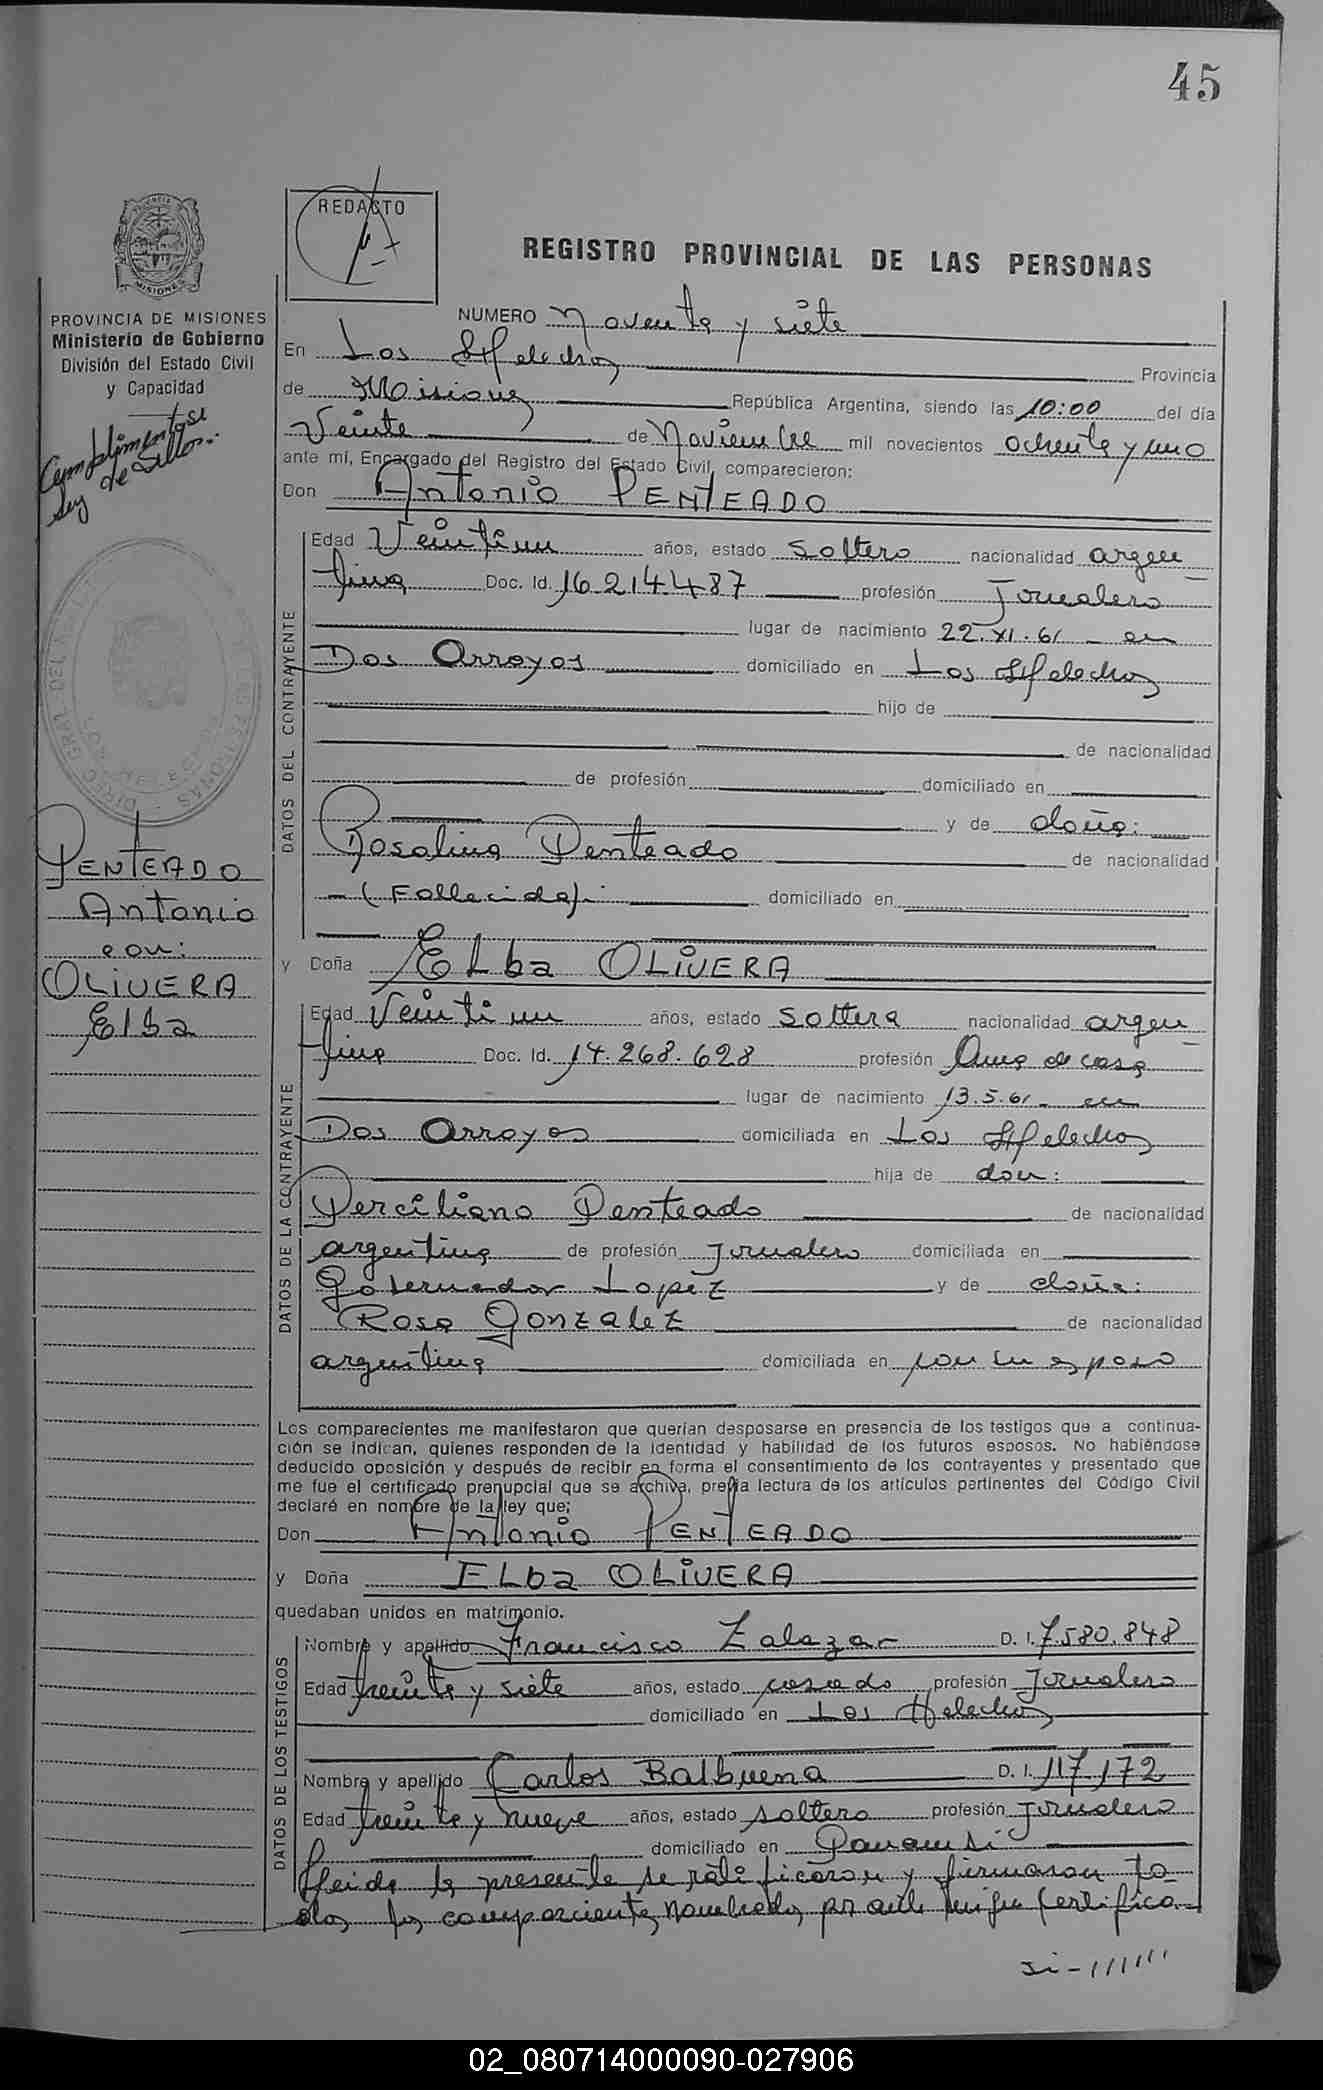 45
REDACTO
REGISTRO PROVINCIAL DE LAS PERSONAS
MISIONES
PROVINCIA DE MISIONES
Ministerio de Gobierno
División del Estado Civil
y Capacidad
Cumplimentase
Ley de Sellos.
PENTEADO
Antonio
con:
OLIVERA
Elba
NUMERO Noventa y siete
En Los Helechos Provincia
de Misiones República Argentina, siendo las 10:00 del día
Veinte de Noviembre mil novecientos ochenta y uno
ante mí, Encargado del Registro del Estado Civil, comparecieron:
Don Antonio PENTEADO
DATOS DEL CONTRAYENTE
Edad Veintiun años, estado soltero nacionalidad argen
tina Doc. Id. 16.214.487 profesión Jornalero
lugar de nacimiento 22.XI.61 - en
Dos Arroyos domiciliado en Los Helechos
hijo de
de nacionalidad
de profesión domiciliado en
y de doña:
Rosalina Penteado de nacionalidad
- (Fallecida). domiciliado en
y Doña Elba OLIVERA
DATOS DE LA CONTRAYENTE
Edad Veintiun años, estado soltera nacionalidad argen
tina Doc. Id. 14.268.628 profesión Ama de casa
lugar de nacimiento 13.5.61 - en
Dos Arroyos domiciliada en Los Helechos
hija de don:
Perciliano Penteado de nacionalidad
argentina de profesión Jornalero domiciliada en
Gobernador Lopez y de doña:
Rosa Gonzalez de nacionalidad
argentina domiciliada en con su esposo
Los comparecientes me manifestaron que querían desposarse en presencia de los testigos que a continua-
ción se indican, quienes responden de la identidad y habilidad de los futuros esposos. No habiéndose
deducido oposición y después de recibir en forma el consentimiento de los contrayentes y presentado que
me fue el certificado prenupcial que se archiva, previa lectura de los artículos pertinentes del Código Civil
declaré en nombre de la ley que:
Don Antonio PENTEADO
y Doña ELba OLIVERA
quedaban unidos en matrimonio.
DATOS DE LOS TESTIGOS
Nombre y apellido Francisco Zalazar D. I. 7.580.848
Edad treinta y siete años, estado casado profesión Jornalero
domiciliado en Los Helechos
Nombre y apellido Carlos Balbuena D. I. 117.172
Edad treinta y nueve años, estado soltero profesión Jornalero
domiciliado en Panambi
Leida la presente se ratificaron y firmaron to-
dos los comparecientes nombrados por ante mi que certifico.
02_080714000090-027906